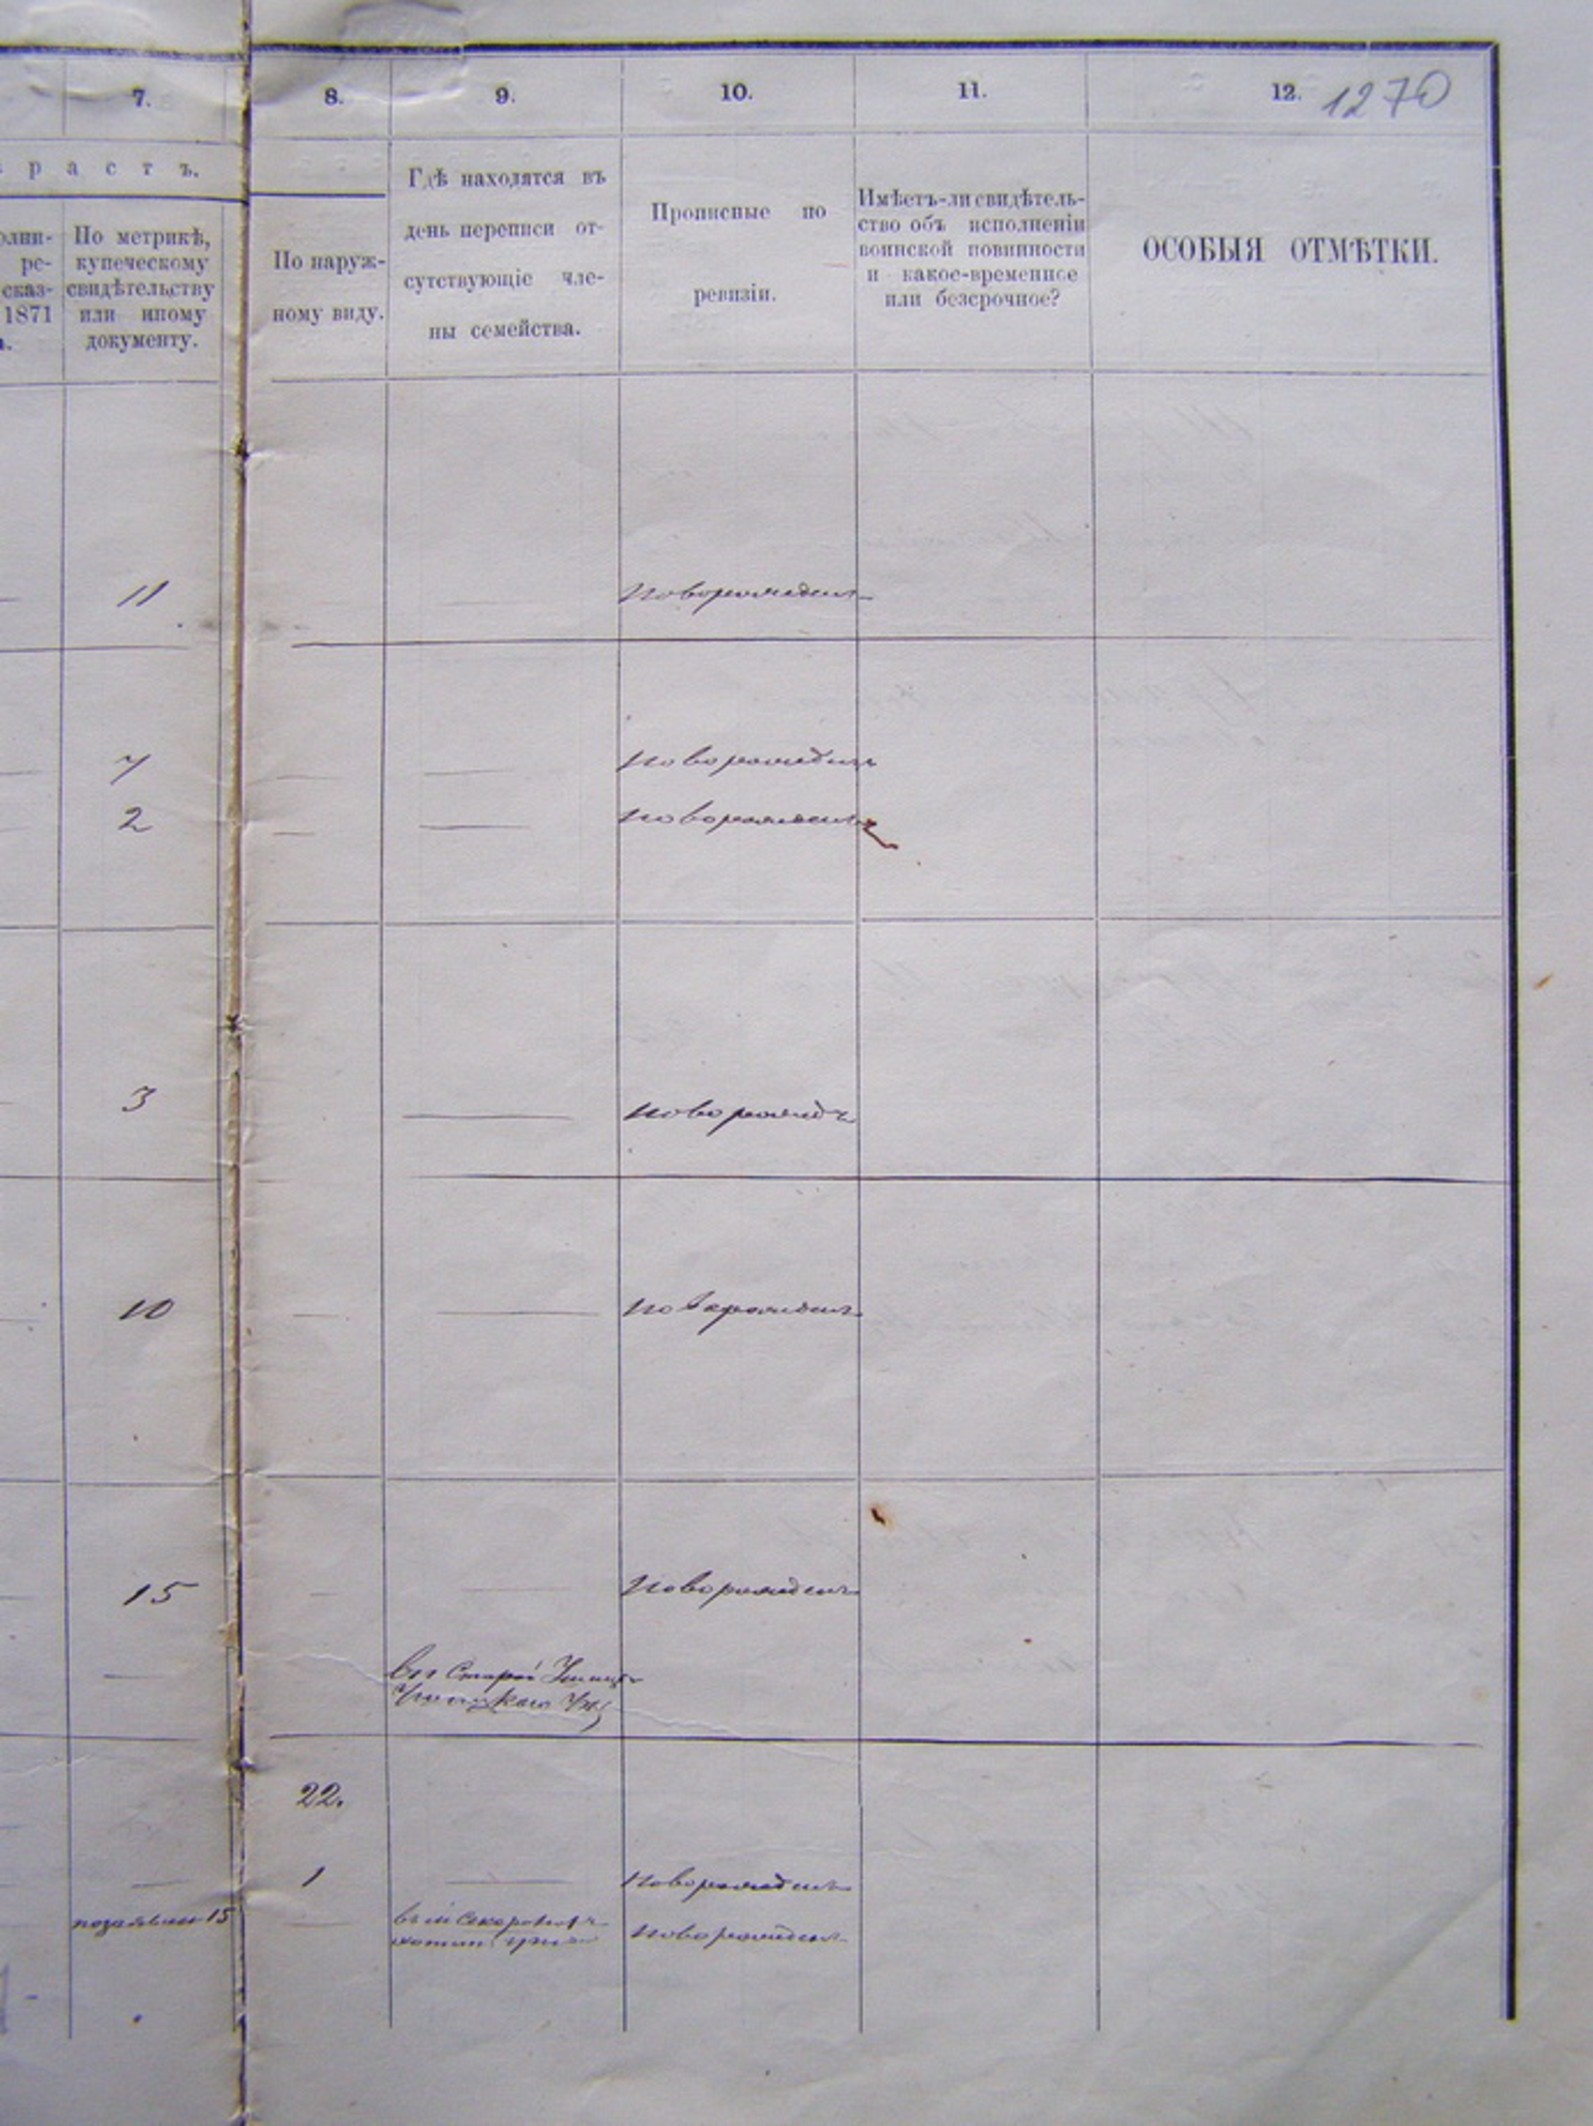 7. 8. 9. 10. 11. 12. 1270
р а с т ъ.
По метрикѣ,
купеческому
свидѣтельству
или иному
документу.
олни-
ре-
сказ-
1871
По наруж-
ному виду.
Гдѣ находятся въ
день переписи от-
сутствующіе чле-
ны семейства.
Прописные по
ревизіи.
Имѣетъ-ли свидѣтель-
ство объ исполненіи
воинской повинности
и какое-временное
или безсрочное?
ОСОБЫЯ ОТМѢТКИ.
11 Новорожден
7 Новорожденъ
2 Новорожденъ
3 Новорожд
10 Новорожденъ
15 Новорожденъ
Старой
22.
1 Новорожденъ
15 Новорожден